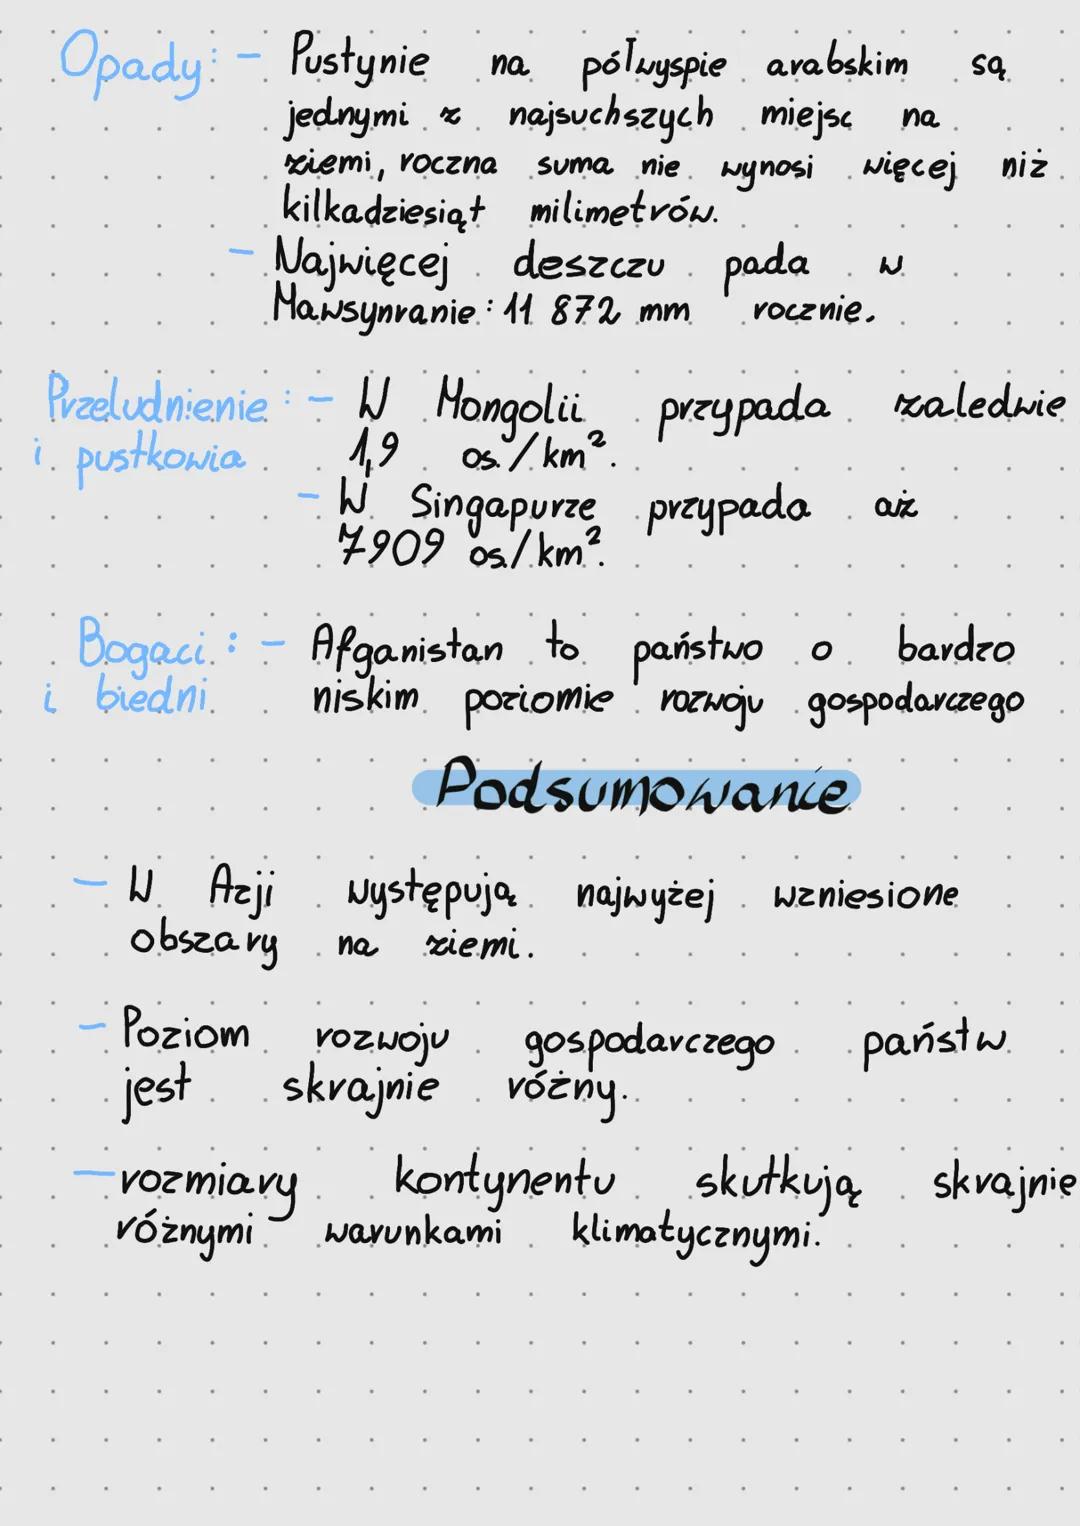 Opady: - Pustynie na półwyspie arabskim są
jednymi z najsuchszych miejsc na
ziemi, roczna suma nie wynosi więcej niż
kilkadziesiąt milimetrów.
- Najwięcej deszczu pada w
Mawsynranie: 11 872 mm rocznie.
Przeludnienie : - W Mongolii przypada zaledwie
i pustkowia 1,9 os./km².
- W Singapurze przypada aż
7909 os./km².
Bogaci : - Afganistan to państwo o bardzo
i biedni niskim poziomie rozwoju gospodarczego
Podsumowanie
- W Azji występują najwyżej wzniesione
obszary na ziemi.
- Poziom rozwoju gospodarczego państw
jest skrajnie różny.
- rozmiary kontynentu skutkują skrajnie
różnymi warunkami klimatycznymi.